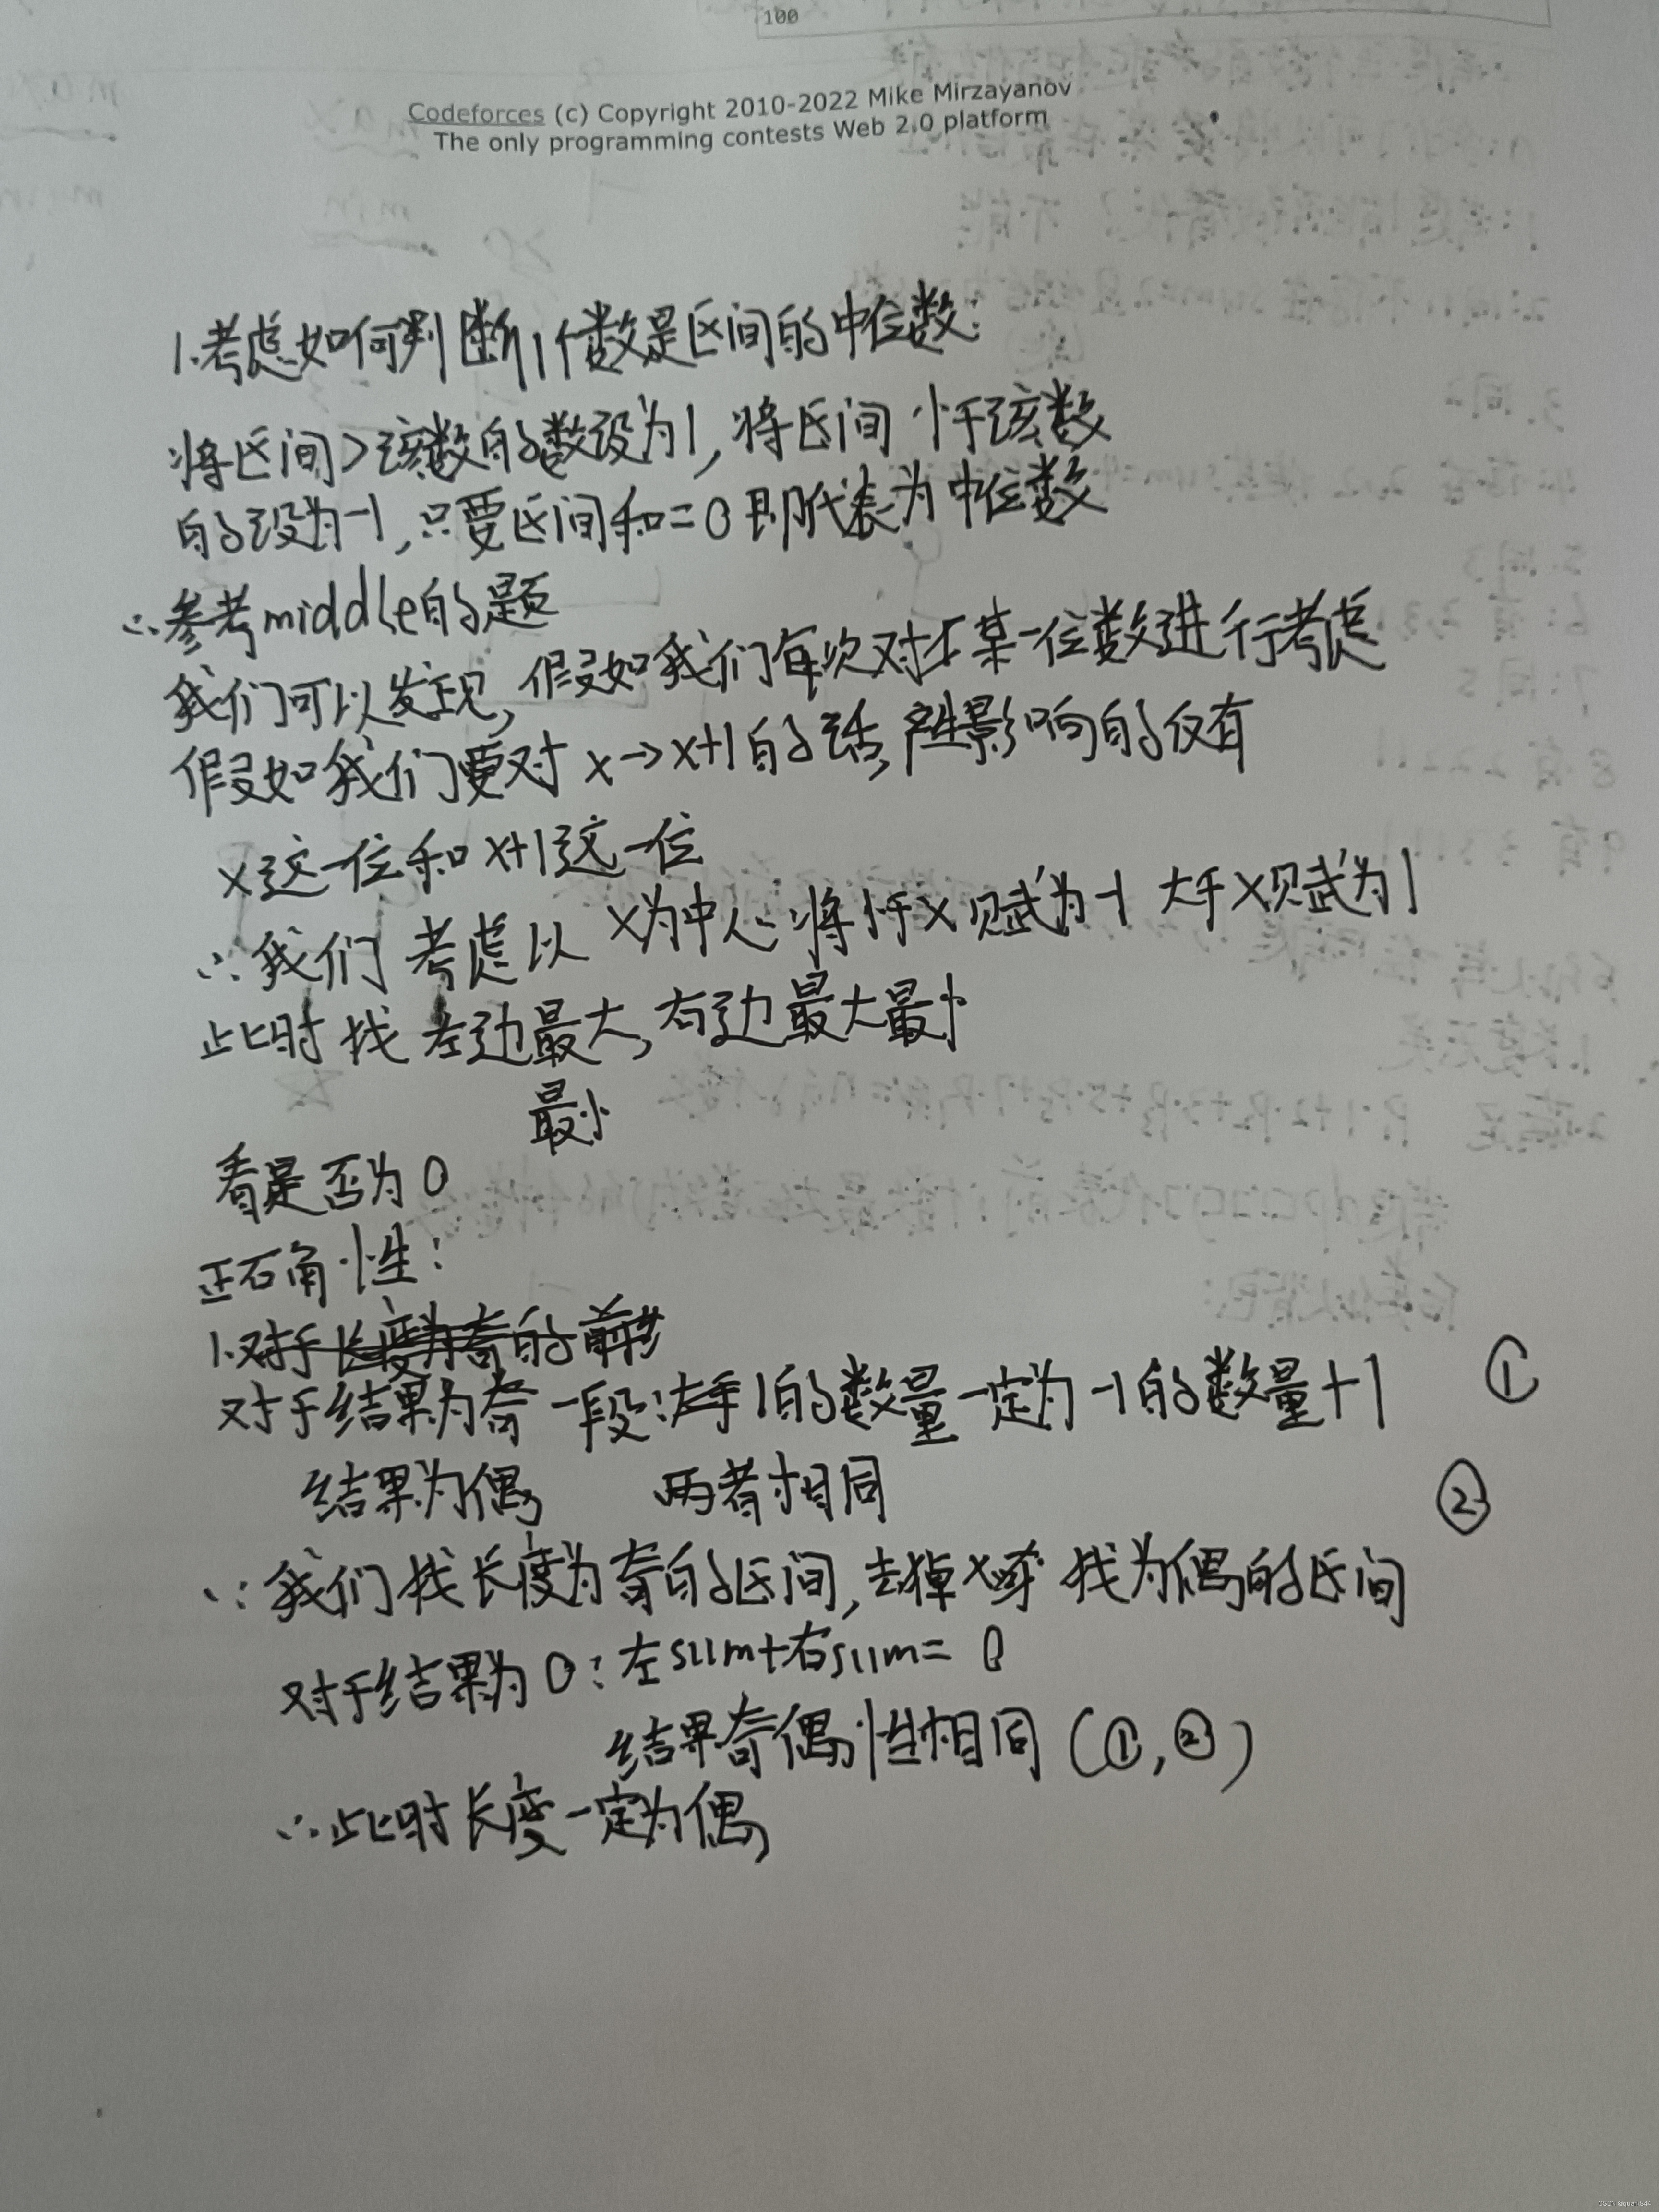 100
Codeforces (c) Copyright 2010-2022 Mike Mirzayanov
The only programming contests Web 2.0 platform
1.考虑如何判断1个数是区间的中位数:
将区间>该数的数设为1,将区间小于该数
的设为-1,只要区间和=0即代表为中位数
∴参考middle的题
我们可以发现,假如我们每次对于某一位数进行考虑
假如我们要对x→x+1的话,产生影响的仅有
x这一位和x+1这一位
∴我们考虑以x为中心将小于x赋为-1 大于x赋为1
此时找左边最大,右边最大最小
最小
看是否为0
正确性:
1.对于长度为奇的
对于结果为奇一段:1的数量一定为-1的数量+1 ①
结果为偶 两者相同 ②
∵我们找长度为奇的区间,去掉x 找为偶的区间
对于结果为0:左sum+右sum=0
结果奇偶性相同(①,②)
∴此时长度一定为偶
CSDN @guoni844